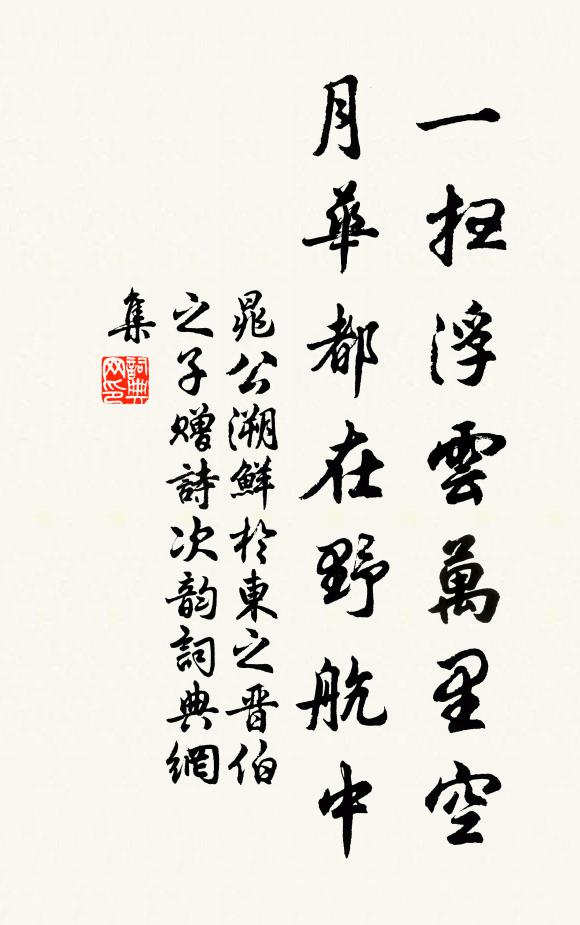 一掃浮雲萬里空
月華都在野航中
晁公溯鮮於東之晋伯
之子贈詩次韵詞典網
集
詞典网印